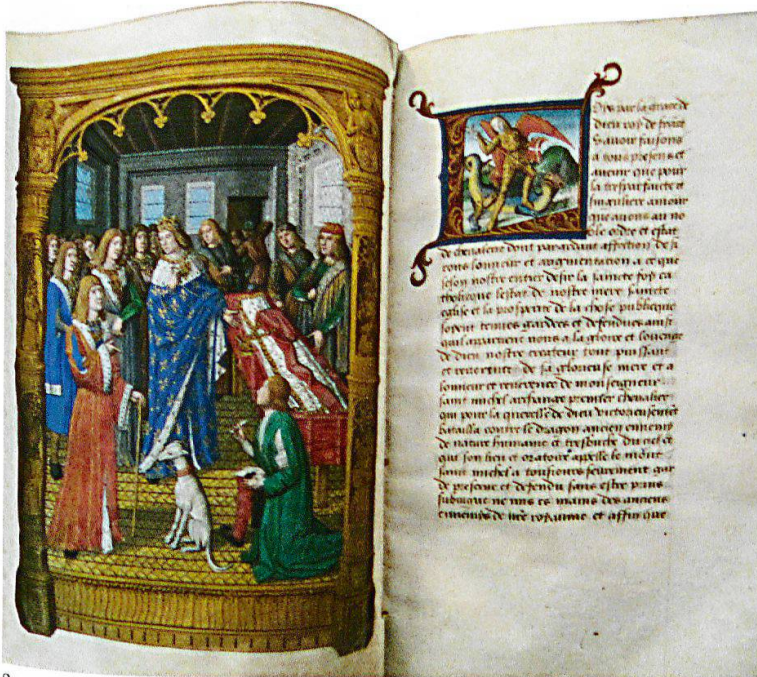 Loys par la grace de
dieu roy de france
Savoir faisons
a tous presens et
avenir que pour
la tresparfaicte et
singuliere amour
que avons au no
ble ordre et estat
de chevalerie dont par ardant affection de si
rons lonneur et augmentation a ce que
selon nostre entier desir la saincte foy ca
tholicque lestat de nostre mere saincte
eglise et la prosperite de la chose publicque
soyent tenues gardees et defendues ainsi
quil appartient nous a la gloire et louenge
de dieu nostre createur tout puissant
et reverence de sa glorieuse mere et a
lonneur et reverence de monseigneur
saint michel archange premier chevalier
qui pour la querelle de dieu victorieusement
batailla contre le dragon ancien ennemy
de nature humaine et tresbucha du ciel et
qui son lieu et oratoire appelle le mont
saint michel a tousiours seurement gar
de preserve et defendu sans estre prins
subiugue ne mis es mains des anciens
ennemys de nre royaume et affin que
2